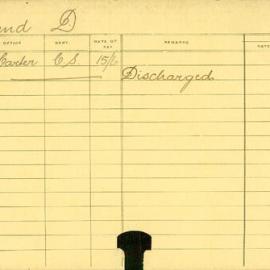 und D
OFFICE DEPT. RATE OF PAY REMARKS DATE
Carter C.S. 15/6
Discharged